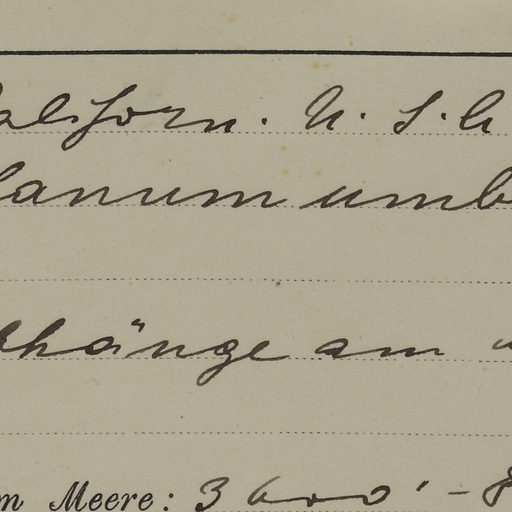 Californ. U. S. A
lanum umb
bhänge am
m Meere: 3600' - 8